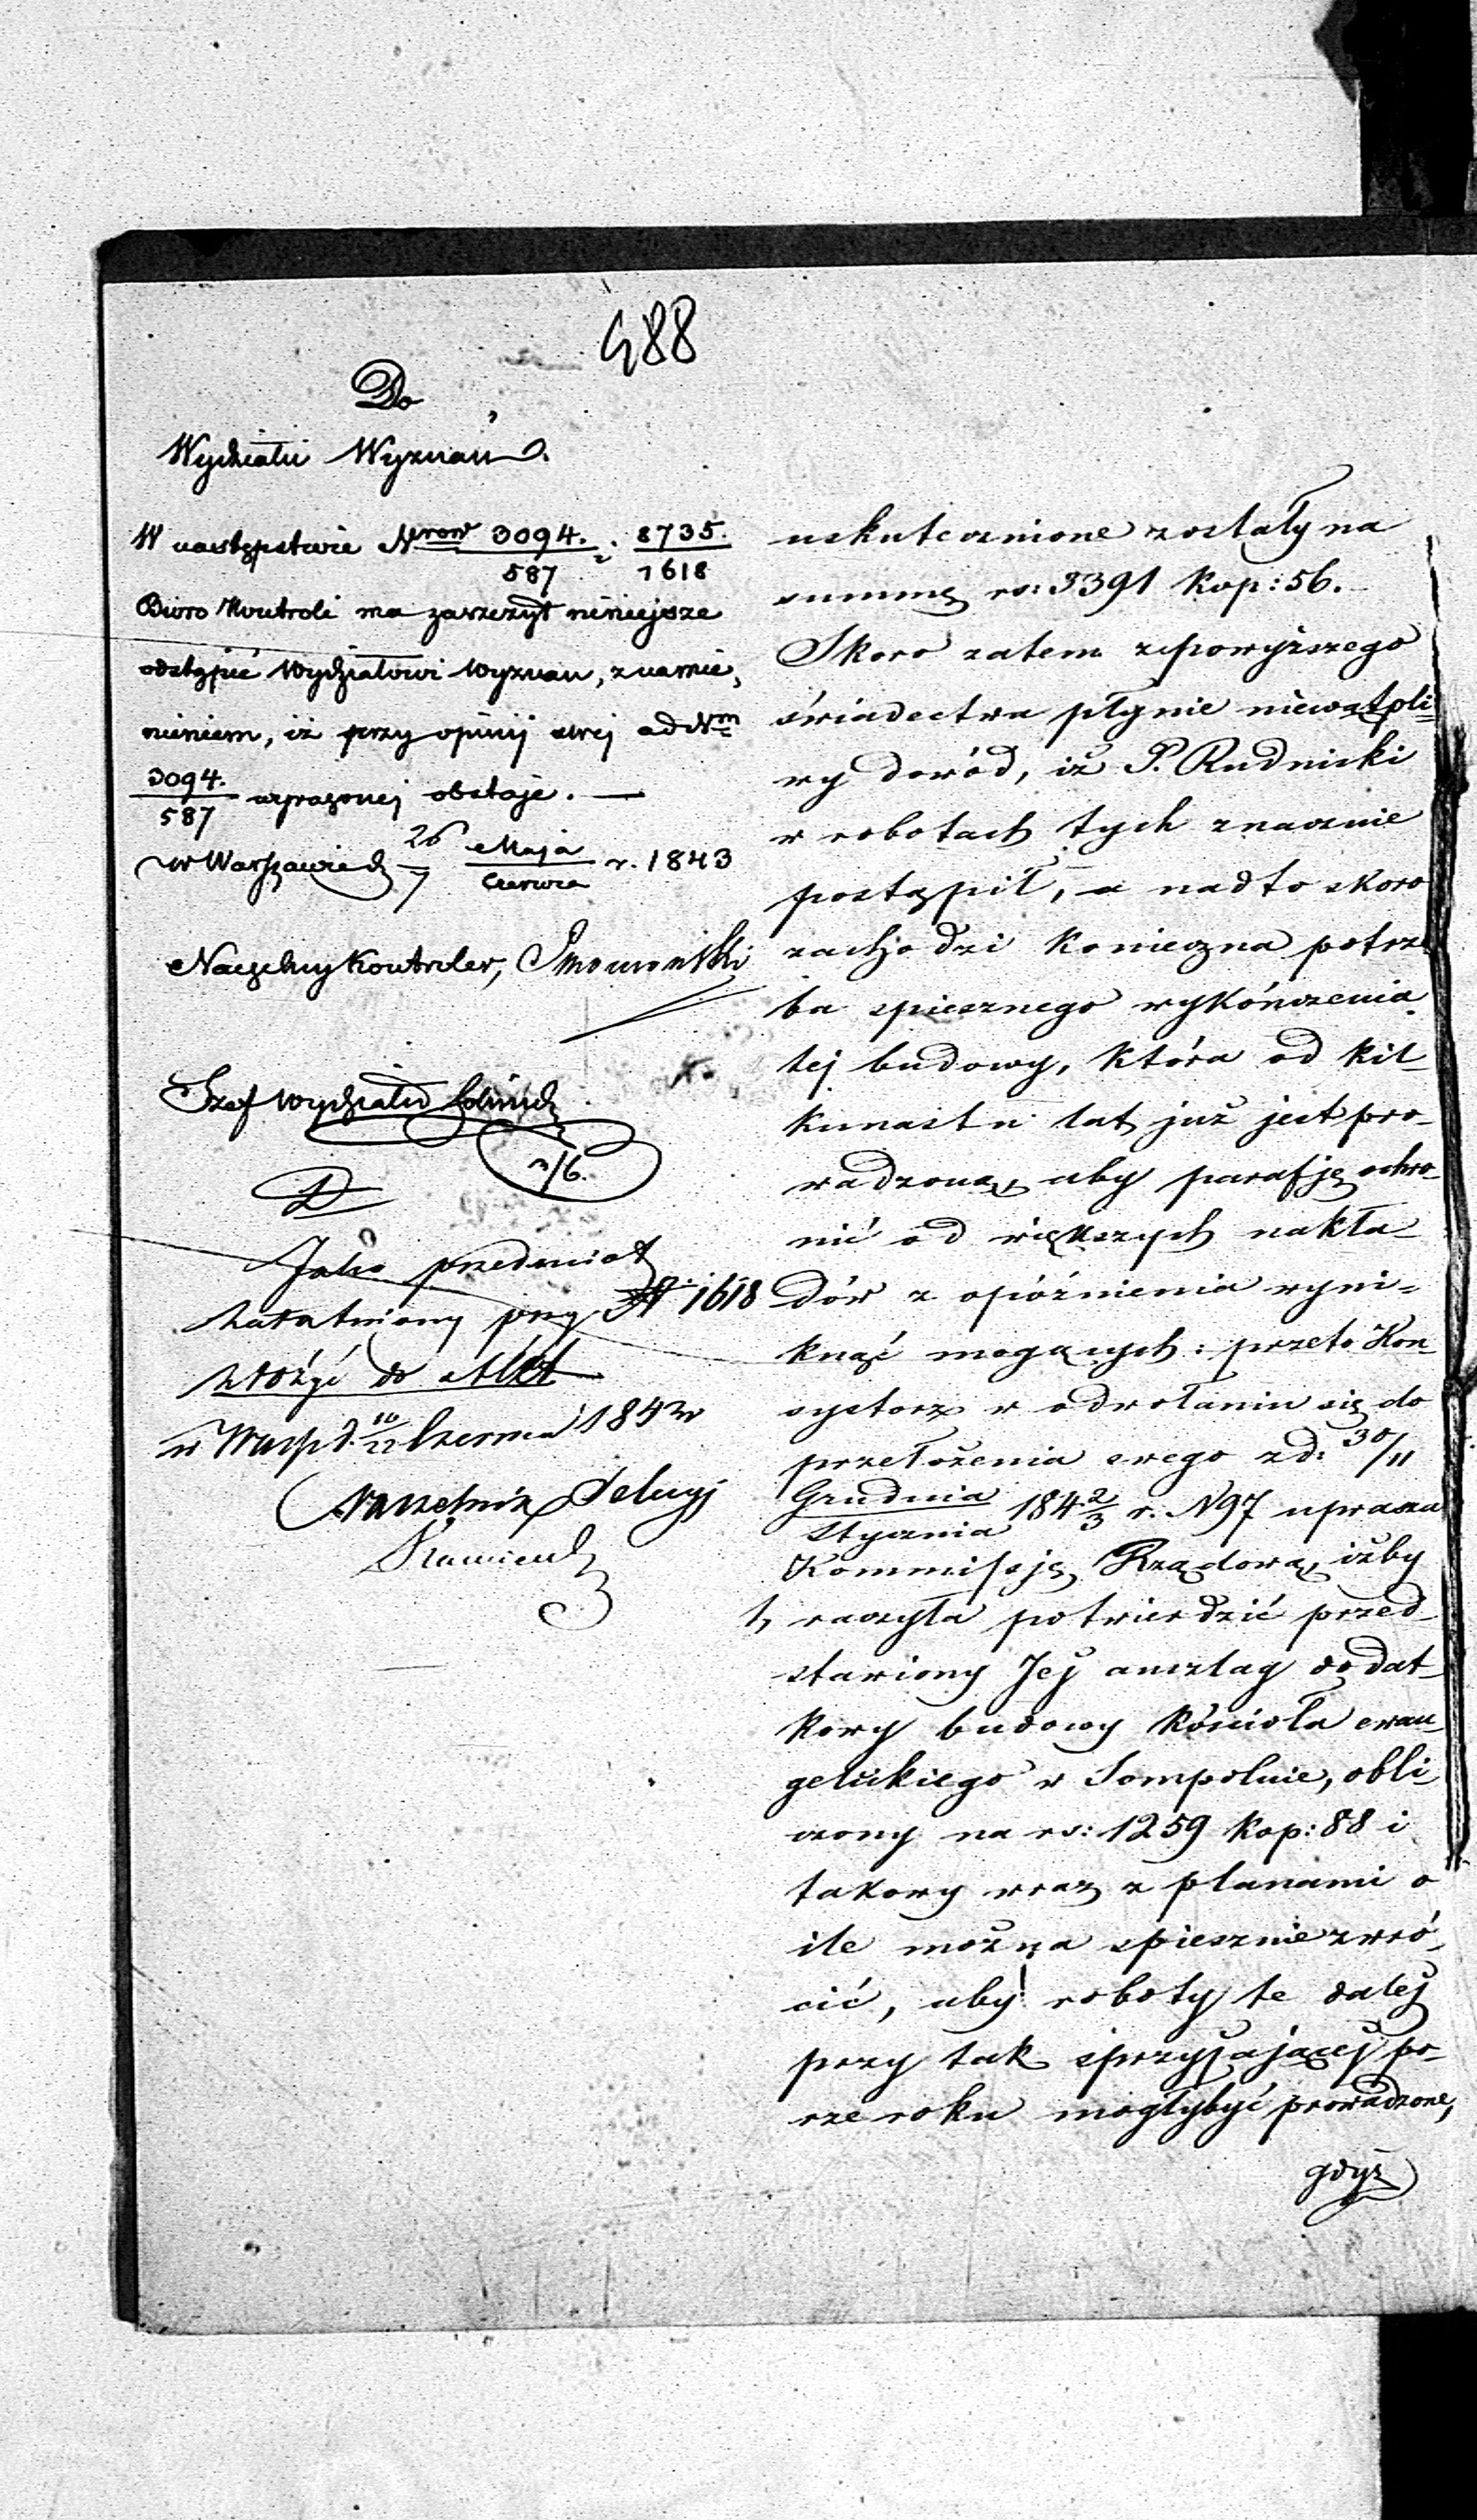 488
Do
Wydziału Wyznań.
W następstwie Nrow 3094./587 i 8735./1618
Biuro Kontroli ma zaszczyt niniejsze
odstąpić Wydziałowi Wyznań, z namie,
nieniem, iż przy opinij swej ad Nm
3094./587 wyrażonej obstaje. —
w Warszawie d 26/7 Maja/Czerwca r. 1843
Naczelny Kontroler,
Szef Wydziału
7/6.
D
Jako przedmiot
załatwiony przy N 1618
złożyć do Akt
w Warsz d. 10/22 Czerwca 1843 r
Naczelnik Sekcyi
uskutecznione zostały na
summę rs: 3391 kop: 56.
Skoro zatem z powyższego
świadectwa płynie niewątpli-
wy dowód, iż P. Rudnicki
w robotach tych znacznie
postąpił, a nadto skoro
zachodzi konieczna potrze
ba spiesznego wykończenia
tej budowy, która od kil-
kunastu lat już jest pro-
wadzona, aby parafję ochro-
nić od większych nakła-
dów z opóźnienia wyni-
knąć mogących: przeto Kon
systorz w odwołaniu się do
przełożenia swego z d: 30/11
Grudnia/Stycznia 184 2/3 r. N 97 uprasza
Kommissję Rządową, iżby
1, raczyła potwierdzić przed-
stawiony Jej anszlag dodat-
kowy budowy kościoła ewan-
gelickiego w Sompolnie, obli-
czony na rs: 1259 kop: 88 i
takowy wraz z planami o
ile można spiesznie zwró-
cić, aby roboty te dalej
przy tak sprzyjającej po-
rze roku mogły być prowadzone,
gdyż